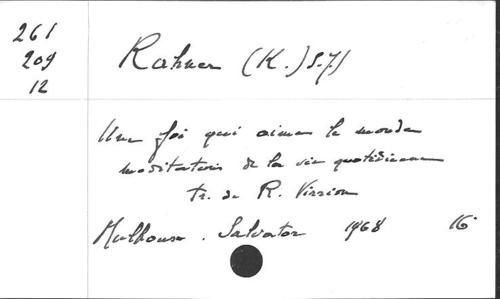 261
209
12
Rahner (K.) S.J.)
Une foi qui aime le monde
méditations de la vie quotidienne
tr. de R. Virrion
Mulhouse. Salvator 1968 16°